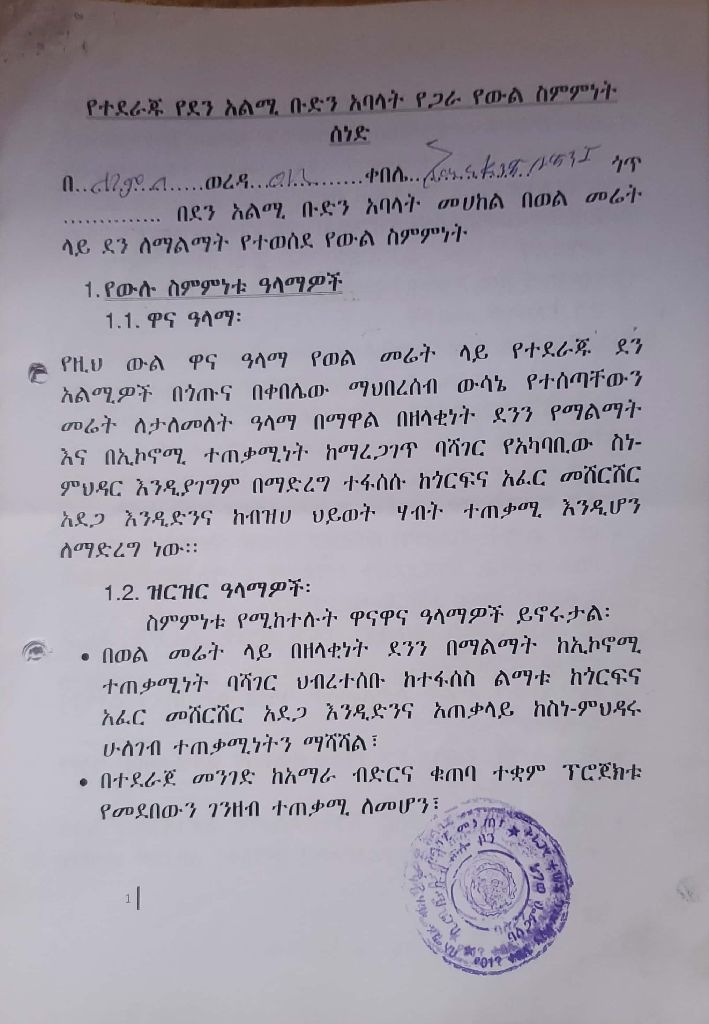 የተደራጁ የደን አልሚ ቡድን አባላት የጋራ የውል ስምምነት
ሰነድ
በ.........ወረዳ...........ቀበሌ.. ጎጥ
............... በደን አልሚ ቡድን አባላት መሀከል በወል መሬት
ላይ ደን ለማልማት የተወሰደ የውል ስምምነት
1. የውሉ ስምምነቱ ዓላማዎች
1.1. ዋና ዓላማ፡
የዚህ ውል ዋና ዓላማ የወል መሬት ላይ የተደራጁ ደን
አልሚዎች በጎጡና በቀበሌው ማህበረሰብ ውሳኔ የተሰጣቸውን
መሬት ለታለመለት ዓላማ በማዋል በዘላቂነት ደንን የማልማት
እና በኢኮኖሚ ተጠቃሚነት ከማረጋገጥ ባሻገር የአካባቢው ስነ-
ምህዳር እንዲያገግም በማድረግ ተፋሰሱ ከጎርፍና አፈር መሸርሸር
አደጋ እንዲድንና ከብዝሀ ህይወት ሃብት ተጠቃሚ እንዲሆን
ለማድረግ ነው፡፡
1.2. ዝርዝር ዓላማዎች፡
ስምምነቱ የሚከተሉት ዋናዋና ዓላማዎች ይኖሩታል፡
• በወል መሬት ላይ በዘላቂነት ደንን በማልማት ከኢኮኖሚ
ተጠቃሚነት ባሻገር ህብረተሰቡ ከተፋሰስ ልማቱ ከጎርፍና
አፈር መሸርሸር አደጋ እንዲድንና አጠቃላይ ከስነ-ምህዳሩ
ሁለገብ ተጠቃሚነትን ማሻሻል፤
• በተደራጀ መንገድ ከአማራ ብድርና ቁጠባ ተቋም ፕሮጀክቱ
የመደበውን ገንዘብ ተጠቃሚ ለመሆን፤
1